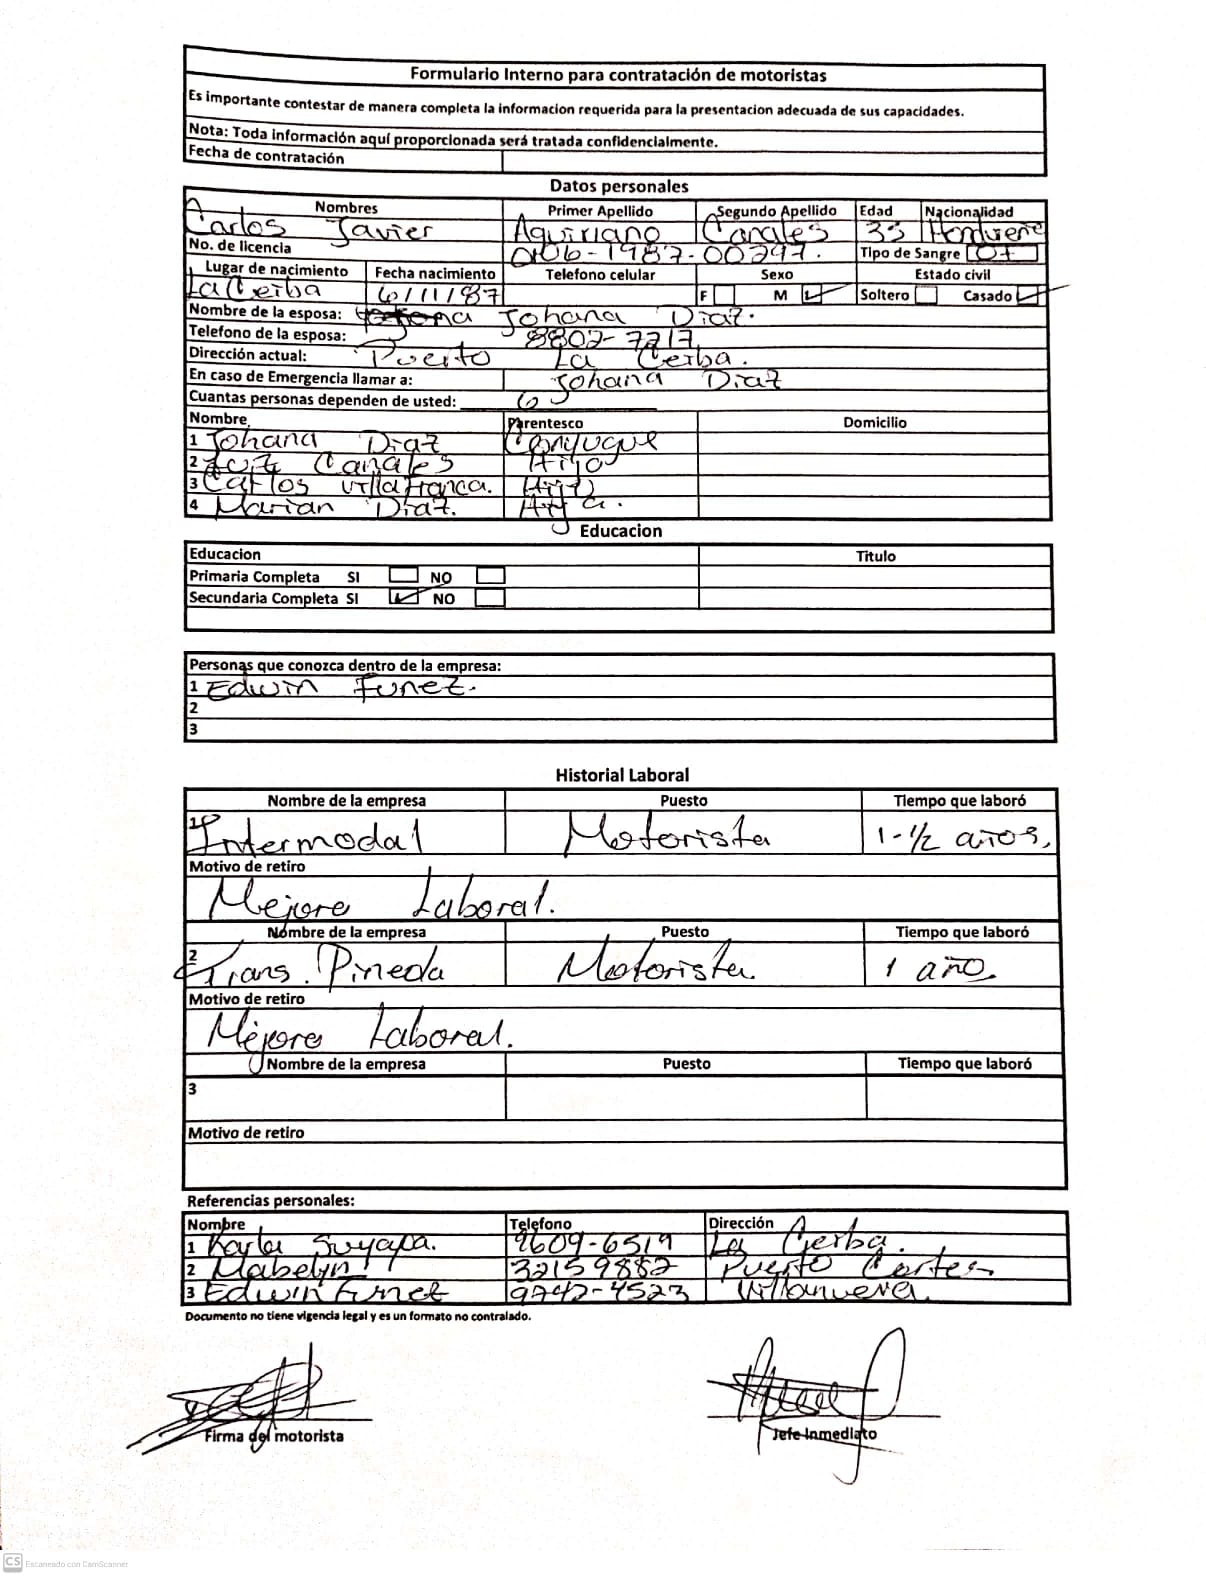 Formulario Interno para contratación de motoristas
Es importante contestar de manera completa la informacion requerida para la presentacion adecuada de sus capacidades.
Nota: Toda información aquí proporcionada será tratada confidencialmente.
Fecha de contratación
Datos personales
Nombres Primer Apellido Segundo Apellido Edad Nacionalidad
Carlos Javier Aguiriano Canales 33 Hondureño
No. de licencia 0106-1987-00297. Tipo de Sangre O+
Lugar de nacimiento Fecha nacimiento Telefono celular Sexo Estado civil
La Ceiba 6/11/87 F M Soltero Casado
Nombre de la esposa: Johana Diaz.
Telefono de la esposa: 8802-7217
Dirección actual: Puerto La Ceiba.
En caso de Emergencia llamar a: Johana Diaz
Cuantas personas dependen de usted: 6
Nombre Parentesco Domicilio
1 Johana Diaz Conyugue
2 Canales Hijo
3 Carlos Villafranca. Hijo
4 Marian Diaz. Hija.
Educacion
Educacion Titulo
Primaria Completa SI NO
Secundaria Completa SI NO
Personas que conozca dentro de la empresa:
1 Edwin Funez.
2
3
Historial Laboral
Nombre de la empresa Puesto Tiempo que laboró
1 Intermodal Motorista 1-½ años,
Motivo de retiro
Mejora Laboral.
Nombre de la empresa Puesto Tiempo que laboró
2 Trans. Pineda Motorista. 1 año.
Motivo de retiro
Mejora Laboral.
Nombre de la empresa Puesto Tiempo que laboró
3
Motivo de retiro
Referencias personales:
Nombre Telefono Dirección
1 Karla Suyapa. 9609-6519 La Ceiba.
2 Mabelyn 32159882 Puerto Cortes
3 Edwin Funez 9742-4523 Villanueva.
Documento no tiene vigencia legal y es un formato no contralado.
Firma del motorista Jefe Inmediato
CS Escaneado con CamScanner